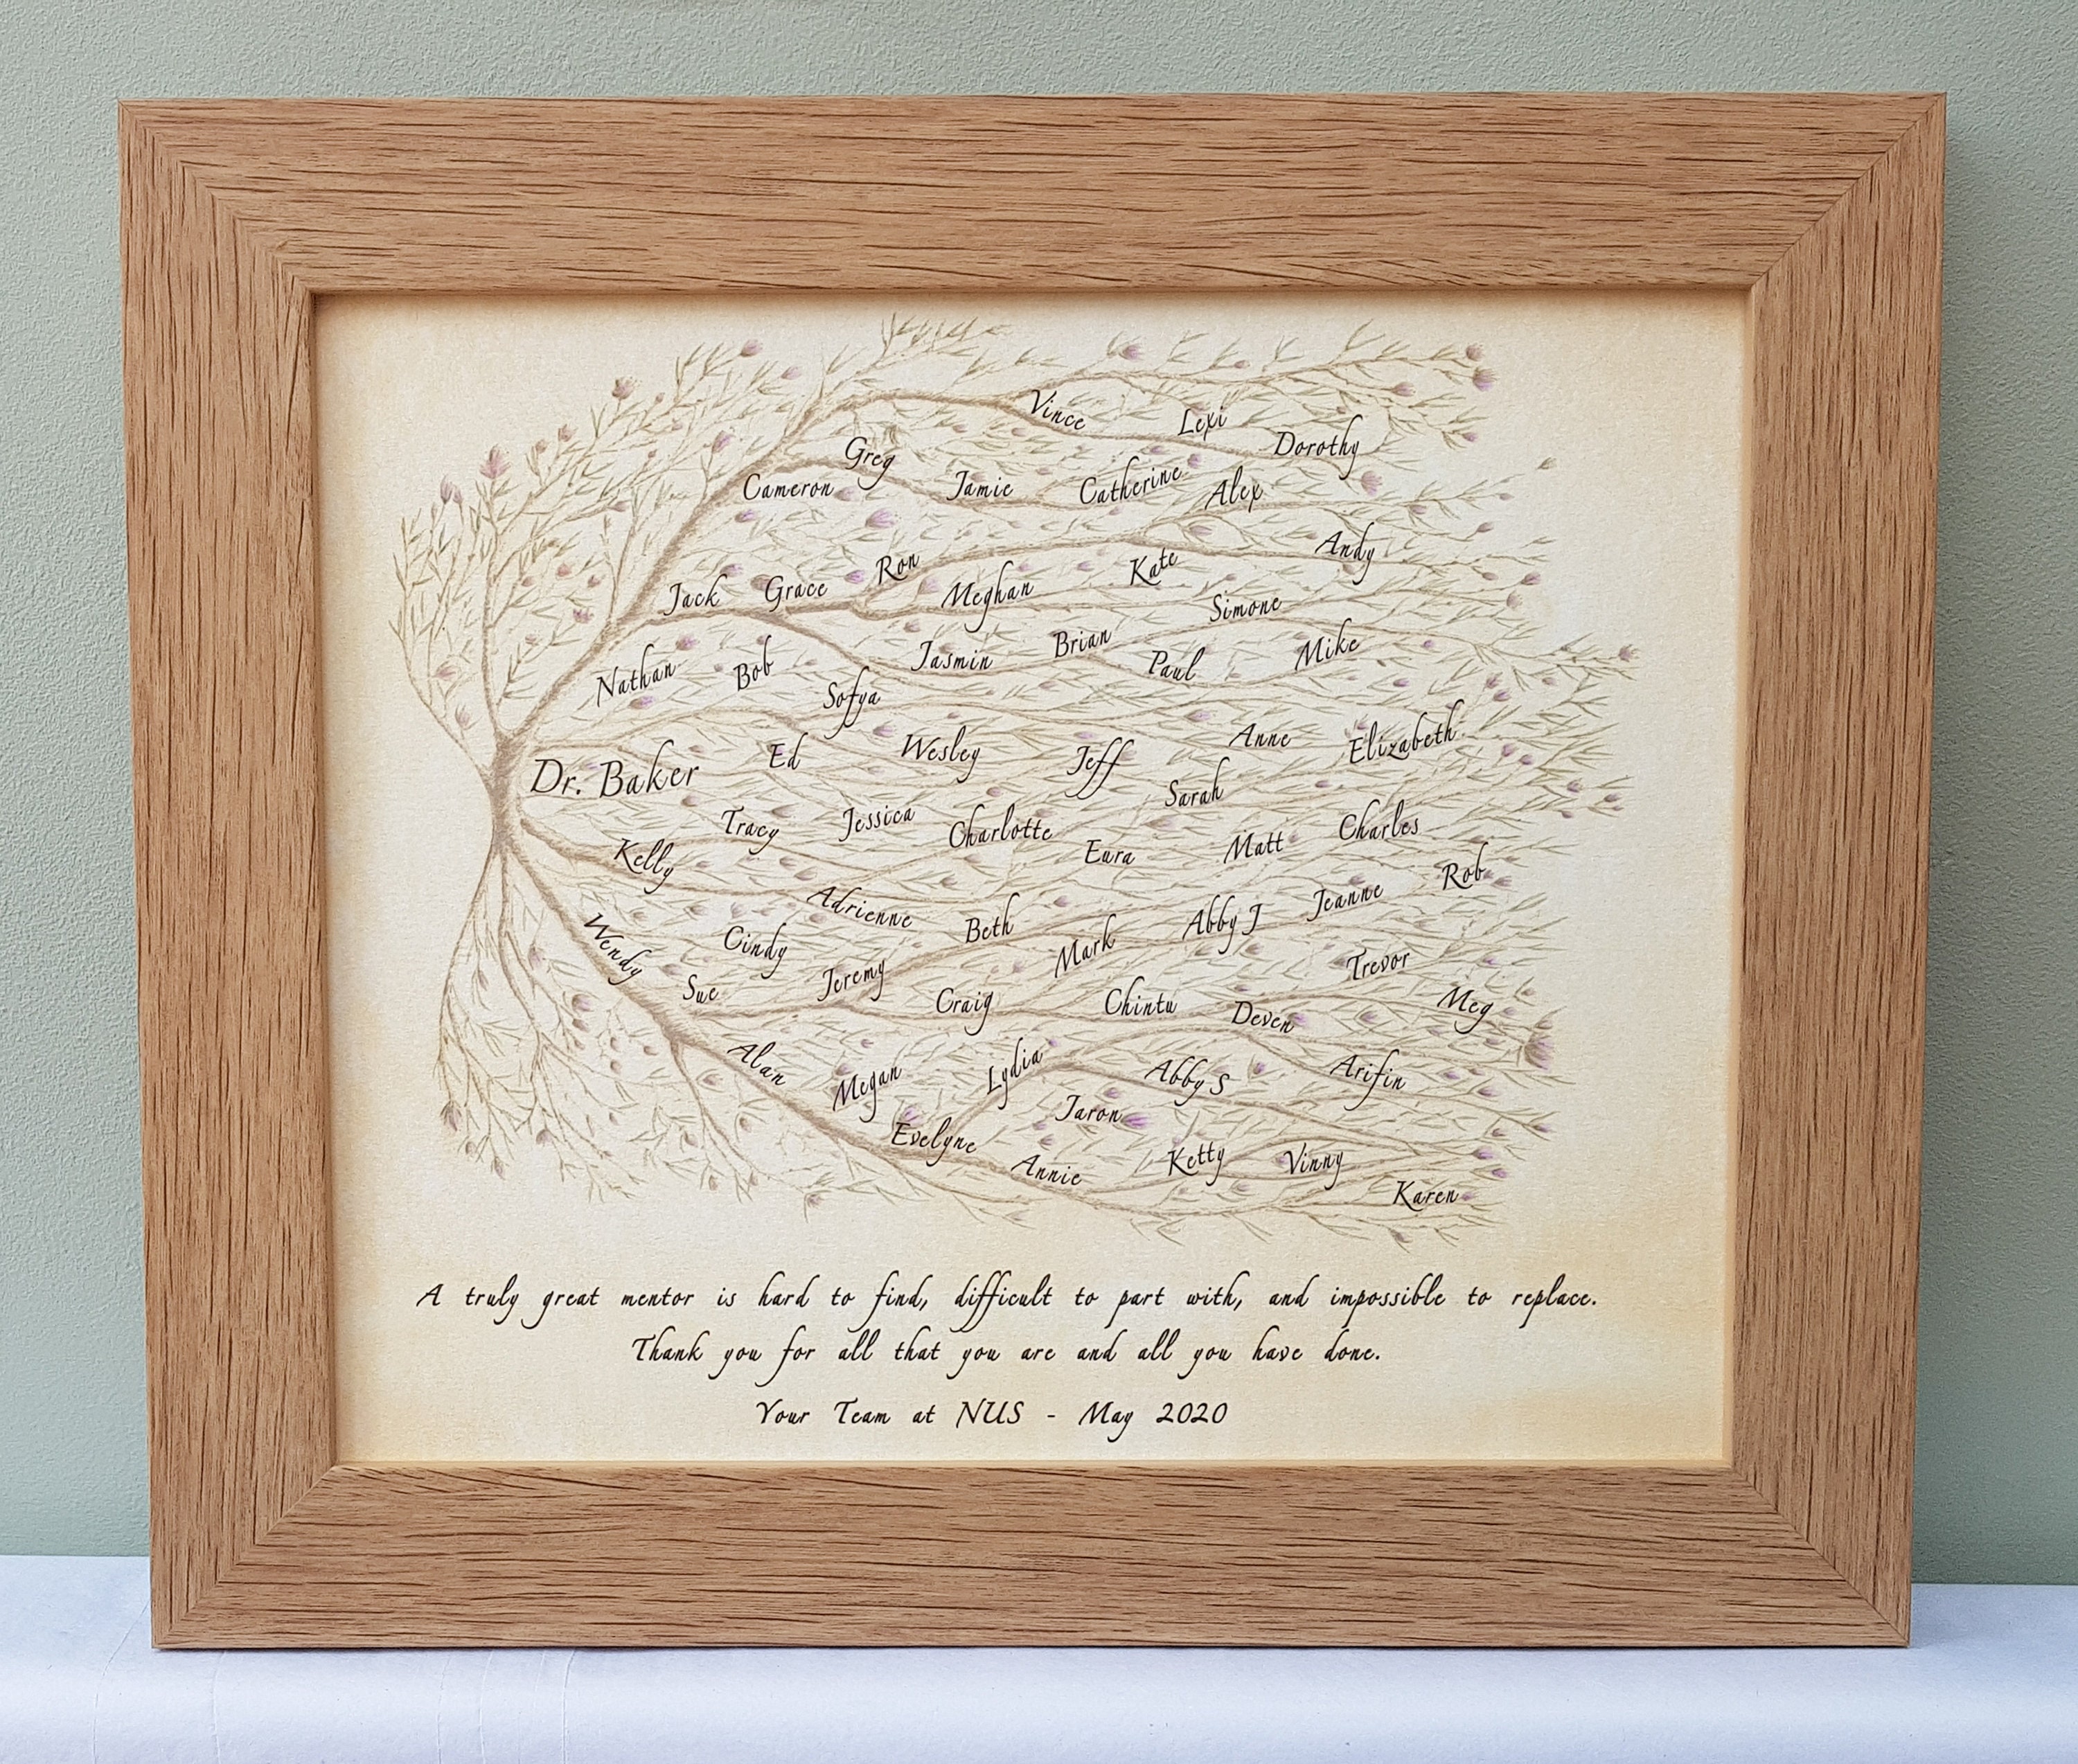 Vince
Lexi
Dorothy
Greg
Cameron
Jamie
Catherine
Alex
Andy
Ron
Kate
Jack
Grace
Meghan
Simone
Nathan
Bob
Jasmin
Brian
Paul
Mike
Sofya
Dr. Baker
Ed
Wesley
Jeff
Anne
Elizabeth
Sarah
Tracy
Jessica
Charlotte
Eura
Matt
Charles
Kelly
Rob
Adrienne
Beth
Abby J
Jeanne
Wendy
Cindy
Mark
Trevor
Sue
Jeremy
Craig
Chintu
Deven
Meg
Alan
Megan
Lydia
Abby S
Arifin
Jaron
Evelyne
Annie
Ketty
Vinny
Karen
A truly great mentor is hard to find, difficult to part with, and impossible to replace.
Thank you for all that you are and all you have done.
Your Team at NUS - May 2020